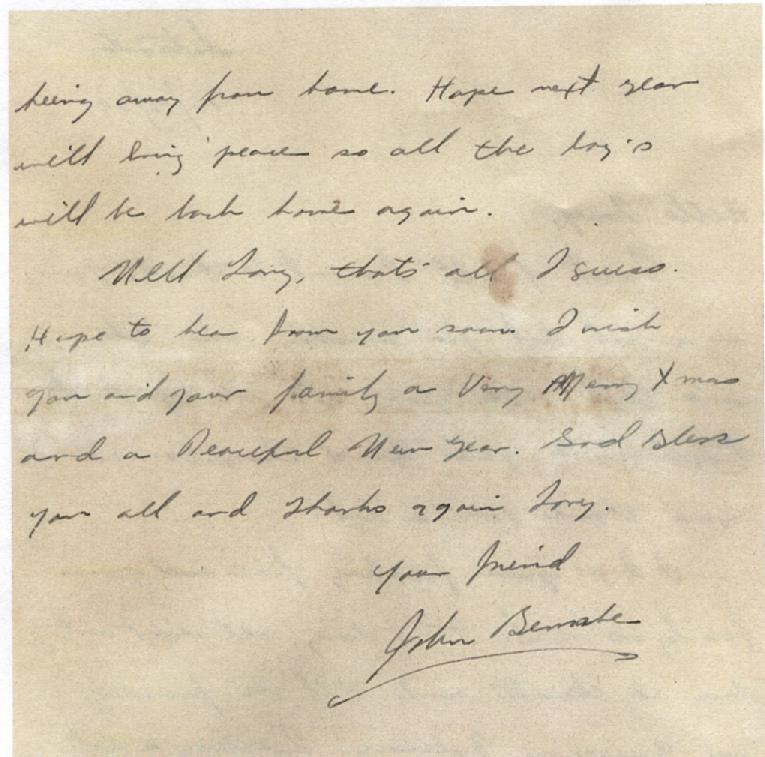 being away from home. Hope next year
will bring peace so all the boy's
will be back home again.
Well Tony, thats all I guess.
Hope to hear from you soon. I wish
you and your family a Very Merry Xmas
and a Peaceful New Year. God Bless
you all and thanks again Tony.
Your friend
John